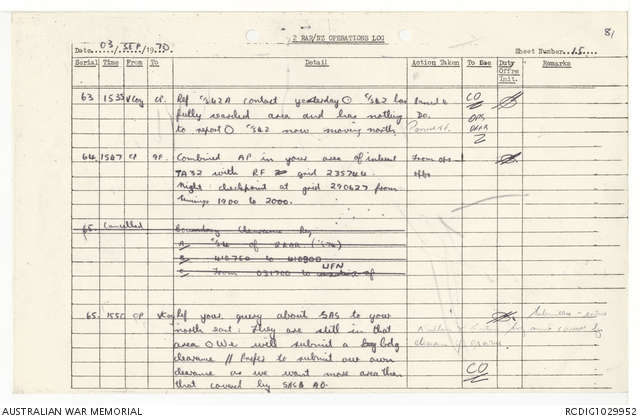 2 RAR/NZ OPERATIONS LOG
81
Date 03 / SEP / 1970
Sheet Number 15
Serial Time From To Detail Action Taken To See Duty Offrs Init. Remarks
63 1535 VCoy CP. Ref S42A contact yesterday O S42 has
fully searched area and has nothing
to report O S42 now moving north.
CO
OPS
2
64 1547 CP Combined AP in your area of interest From ops
TA32 with RF grid 235744
Night checkpoint at grid 290627 from
timings 1900 to 2000.
65 Cancelled Boundary Clearance Req
A/ of
B/ 410750 to 410800
UFN
C/ From 031700 to
65. 1550 CP VCoy Ref your query about SAS to your
north east: They are still in that
area O We will submit a bdg
clearance // Prefer to submit our own
clearance as we want more area than
that covered by SAS AO.
CO
AUSTRALIAN WAR MEMORIAL
RCDIG1029952